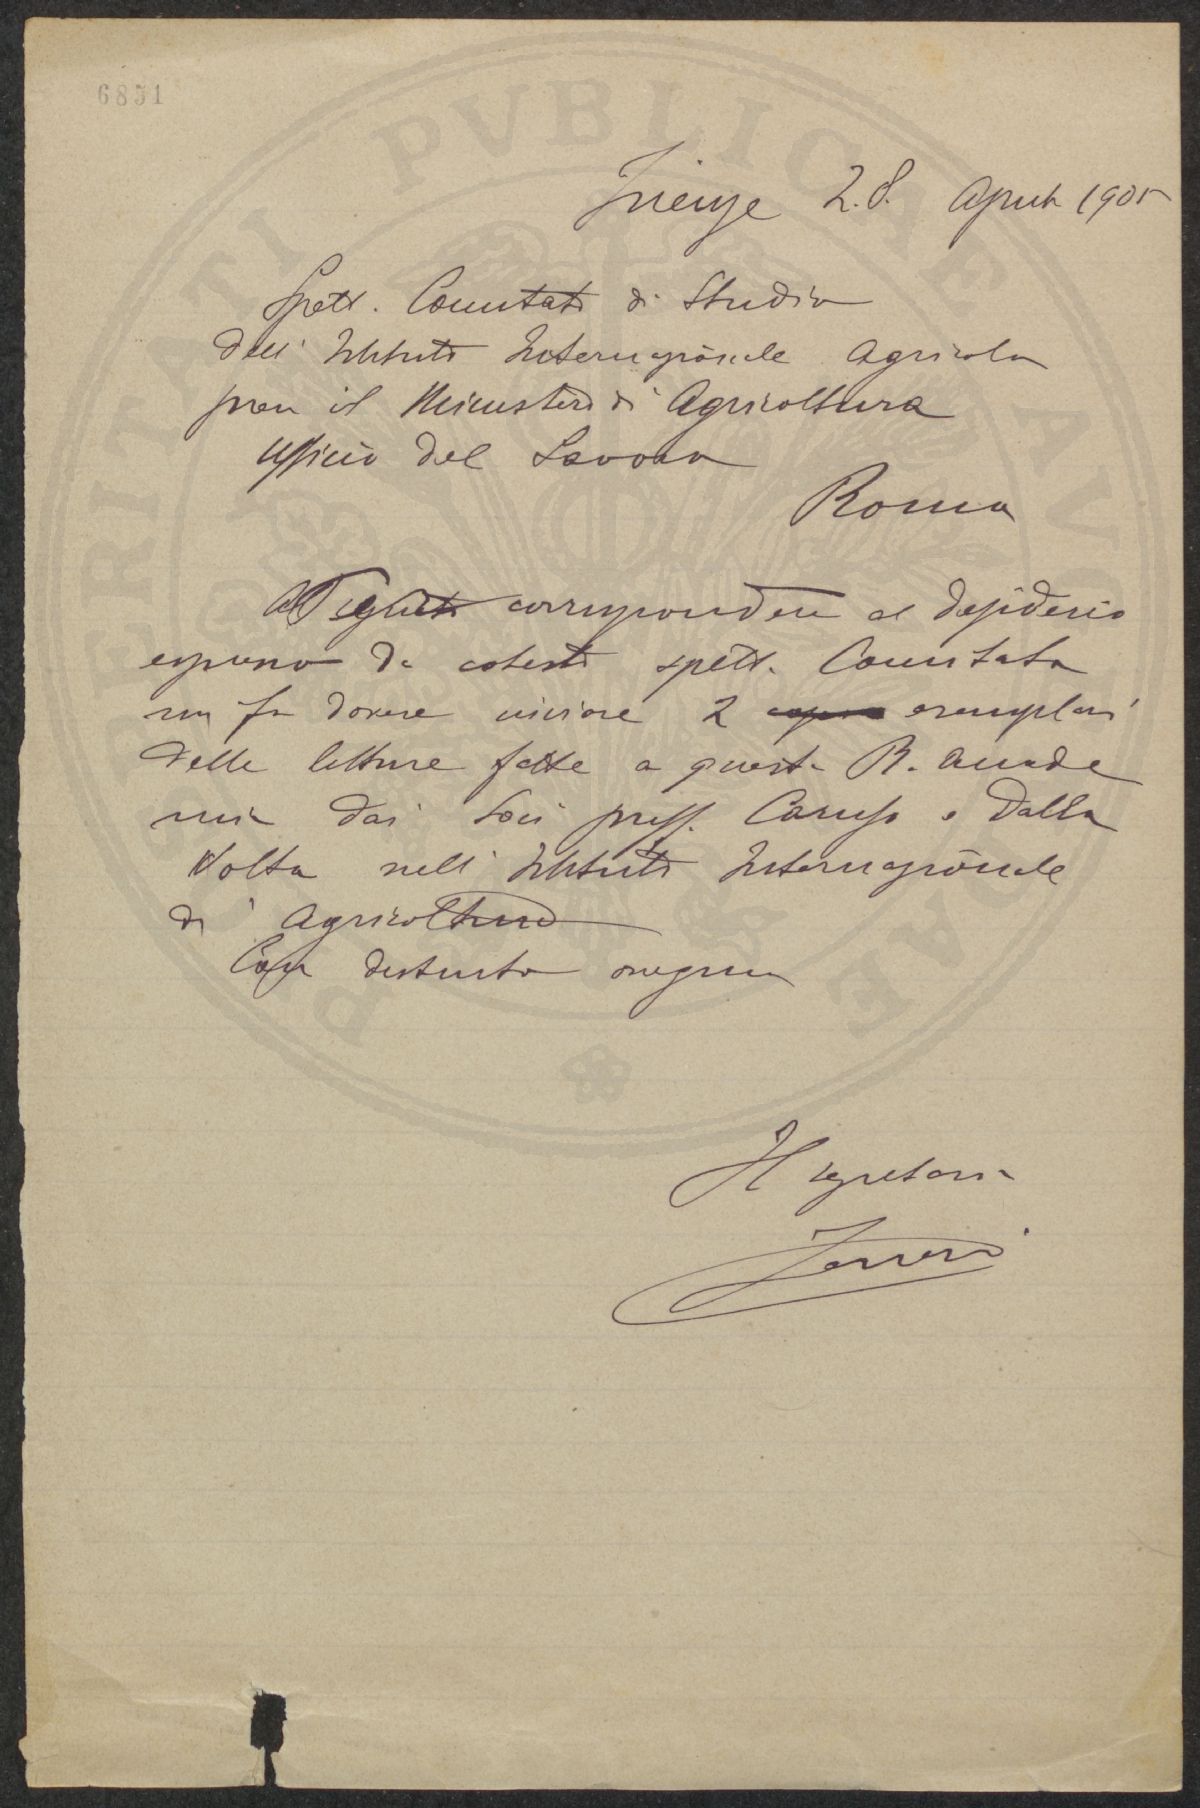 6851
Firenze 28. Aprile 1905
Spett. Comitato di Studio
dell' Istituto Internazionale Agricolo
presso il Ministero di Agricoltura
Ufficio del Lavoro
Roma
corrispondere al desiderio
espresso da cotesto spett. Comitato
mi fo dovere inviare 2 esemplari
delle letture fatte a questa R. Accade
mia dai Soci proff. Caruso e Dalla
Volta sull' Istituto Internazionale
di Agricoltura
Con distinto ossequio
Il segretario